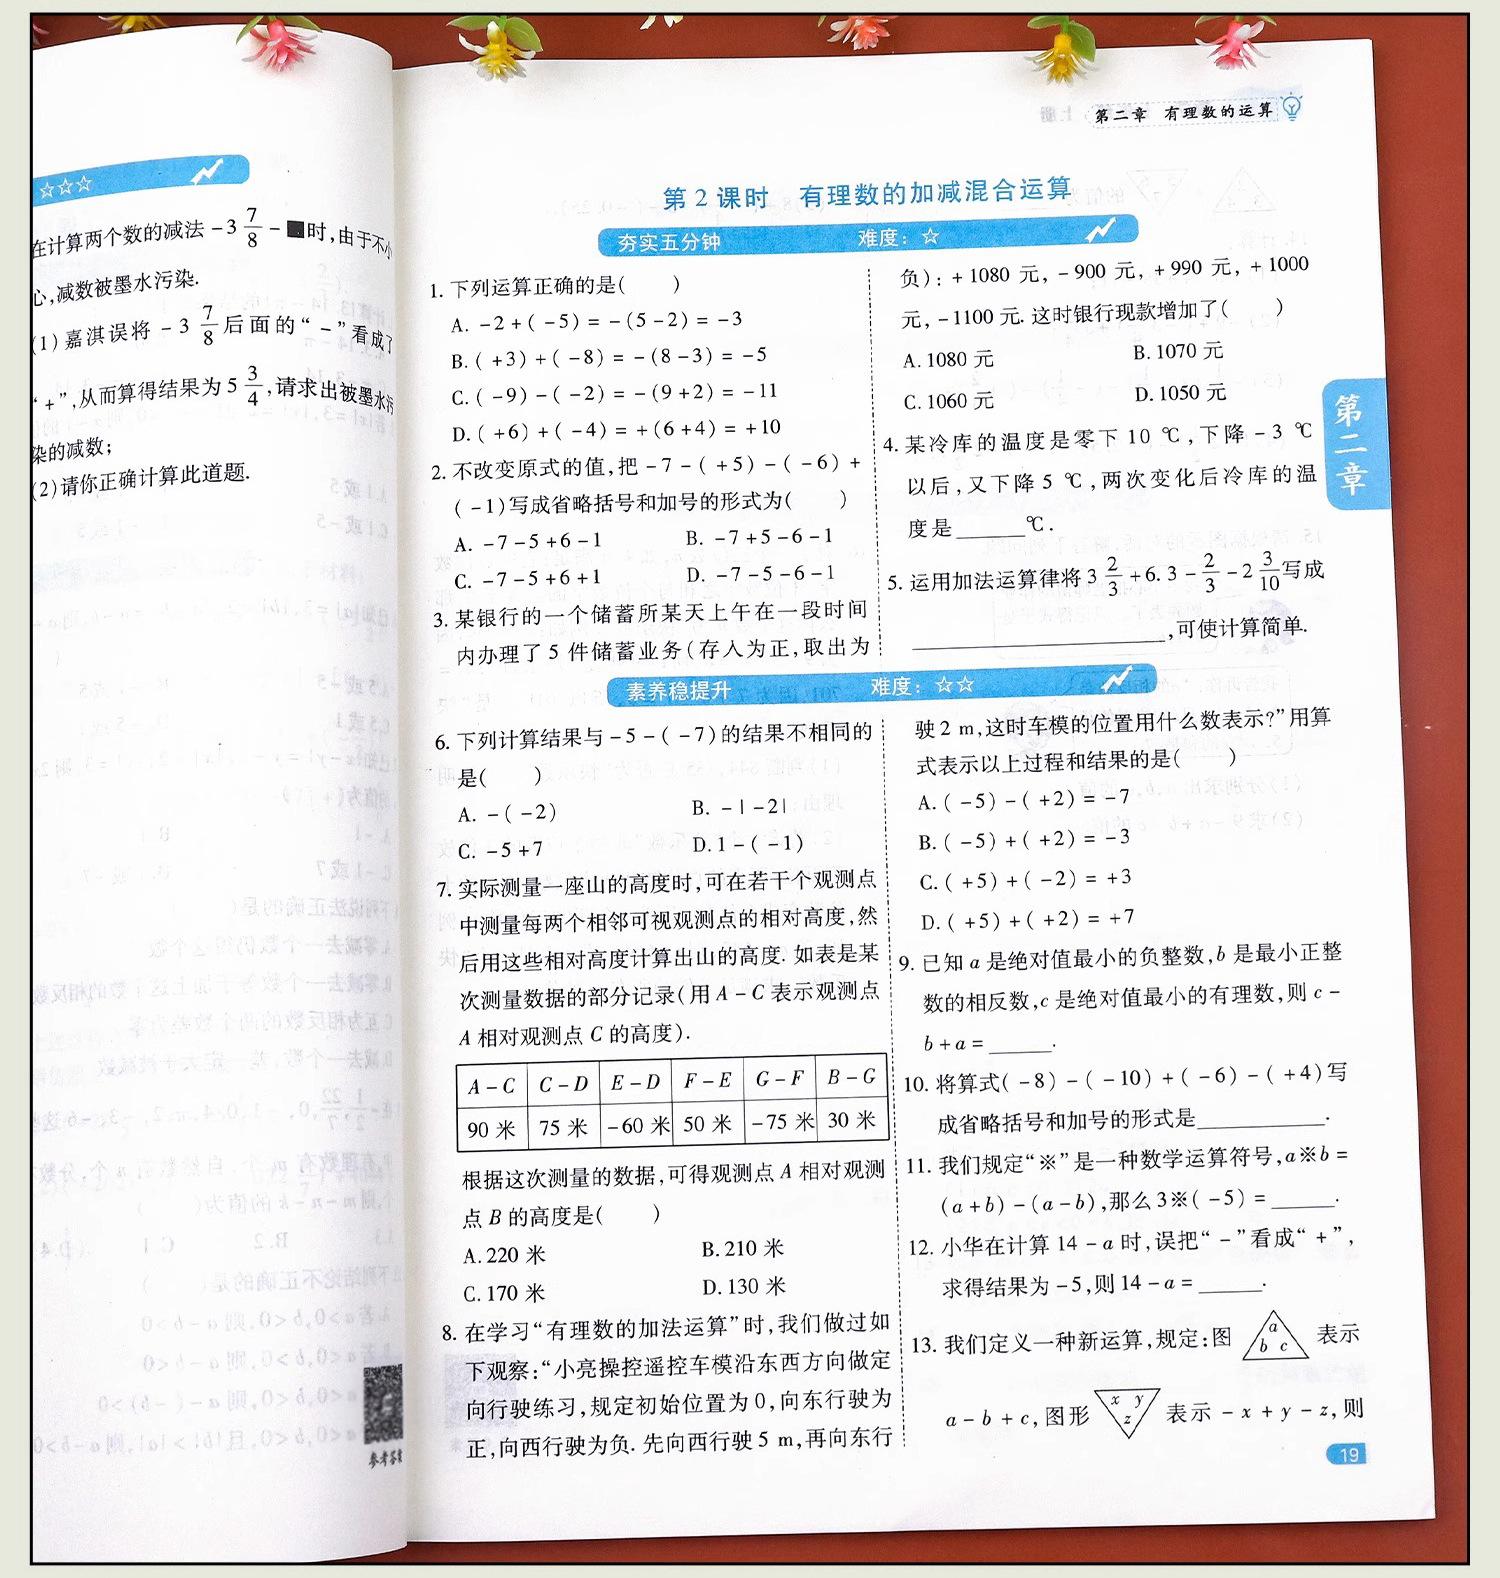 ☆☆☆
在计算两个数的减法 -3 7/8 - ■时,由于不小
心,减数被墨水污染.
(1)嘉淇误将 -3 7/8 后面的“-”看成了
“+”,从而算得结果为 5 3/4,请求出被墨水污
染的减数;
(2)请你正确计算此道题.
参考答案
第二章 有理数的运算
第2课时 有理数的加减混合运算
夯实五分钟 难度:☆
1. 下列运算正确的是( )
A. -2+(-5)=-(5-2)=-3
B. (+3)+(-8)=-(8-3)=-5
C. (-9)-(-2)=-(9+2)=-11
D. (+6)+(-4)=+(6+4)=+10
2. 不改变原式的值,把 -7-(+5)-(-6)+
(-1)写成省略括号和加号的形式为( )
A. -7-5+6-1 B. -7+5-6-1
C. -7-5+6+1 D. -7-5-6-1
3. 某银行的一个储蓄所某天上午在一段时间
内办理了5件储蓄业务(存入为正,取出为
负):+1080元,-900元,+990元,+1000
元,-1100元.这时银行现款增加了( )
A. 1080元 B. 1070元
C. 1060元 D. 1050元
4. 某冷库的温度是零下10 ℃,下降-3 ℃
以后,又下降5 ℃,两次变化后冷库的温
度是______℃.
5. 运用加法运算律将 3 2/3 +6.3- 2/3 -2 3/10 写成
____________________,可使计算简单.
第二章
素养稳提升 难度:☆☆
6. 下列计算结果与-5-(-7)的结果不相同的
是( )
A. -(-2) B. -|-2|
C. -5+7 D. 1-(-1)
7. 实际测量一座山的高度时,可在若干个观测点
中测量每两个相邻可视观测点的相对高度,然
后用这些相对高度计算出山的高度.如表是某
次测量数据的部分记录(用A-C表示观测点
A相对观测点C的高度).
A-C C-D E-D F-E G-F B-G
90米 75米 -60米 50米 -75米 30米
根据这次测量的数据,可得观测点A相对观测
点B的高度是( )
A. 220米 B. 210米
C. 170米 D. 130米
8. 在学习“有理数的加法运算”时,我们做过如
下观察:“小亮操控遥控车模沿东西方向做定
向行驶练习,规定初始位置为0,向东行驶为
正,向西行驶为负.先向西行驶5 m,再向东行
驶2 m,这时车模的位置用什么数表示?”用算
式表示以上过程和结果的是( )
A. (-5)-(+2)=-7
B. (-5)+(+2)=-3
C. (+5)+(-2)=+3
D. (+5)+(+2)=+7
9. 已知a是绝对值最小的负整数,b是最小正整
数的相反数,c是绝对值最小的有理数,则c-
b+a=______.
10. 将算式(-8)-(-10)+(-6)-(+4)写
成省略括号和加号的形式是____________.
11. 我们规定“※”是一种数学运算符号,a※b=
(a+b)-(a-b),那么3※(-5)=______.
12. 小华在计算14-a时,误把“-”看成“+”,
求得结果为-5,则14-a=______.
13. 我们定义一种新运算,规定:图 a b c 表示
a-b+c,图形 x y z 表示-x+y-z,则
19